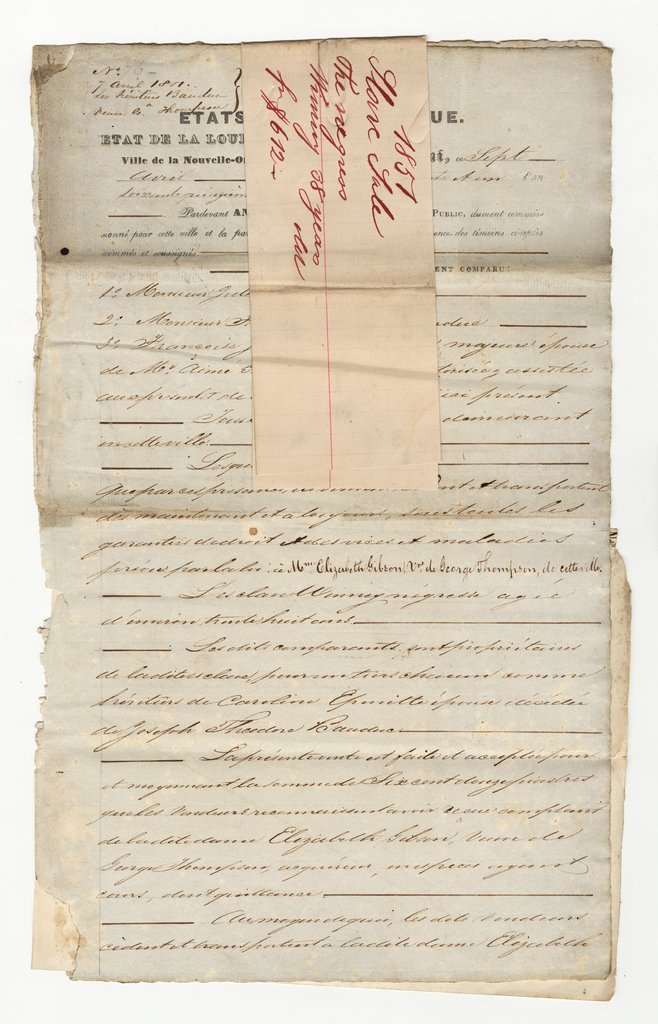 No.
7 avril 1851.
Les héritiers Bauduc
à Thompson
ETATS
QUE.
ETAT DE LA LOUI
Ville de la Nouvelle-O
Sept
avril
l'an
soixante quinzième
Pardevant AN
PUBLIC, dument commis
sionné pour cette ville et la pa
ence des témoins ci-après
nommés et soussignés
ENT COMPARU:
1851
Slave Sale
The negress
Winney 38 years
old
for $612
1o. Monsieur Jul
2o. Monsieur
3o. Françoise
majeure épouse
de Mr. Aimé
autorisée & assistée
aux présentes de
ici présent
Tous
demeurant
en cette ville
Lesqu
Que par ces présentes,
ent et transportent
dès maintenant et à toujours, sous toutes les
garanties de droit et de vices et maladies
prévus par la loi: à Mme. Elizabeth Gibson, Vve. de George Thompson, de cette ville.
L'esclave Winney négresse agée
d'environ trente huit ans.
Les dits comparants sont propriétaires
de la dite esclave, pour un tiers chacun comme
héritiers de Caroline épouse décédée
de Joseph Théodore Bauduc
La présente vente est faite et acceptée pour
et moyennant la somme de Six cent douze piastres
que les vendeurs reconnaissent avoir reçue comptant
de la dite dame Elizabeth Gibson, veuve de
George Thompson, acquéreur, en espèces ayant
cours, dont quittance.
Au moyen de quoi, les dits vendeurs
cèdent et transportent à la dite dame Elizabeth